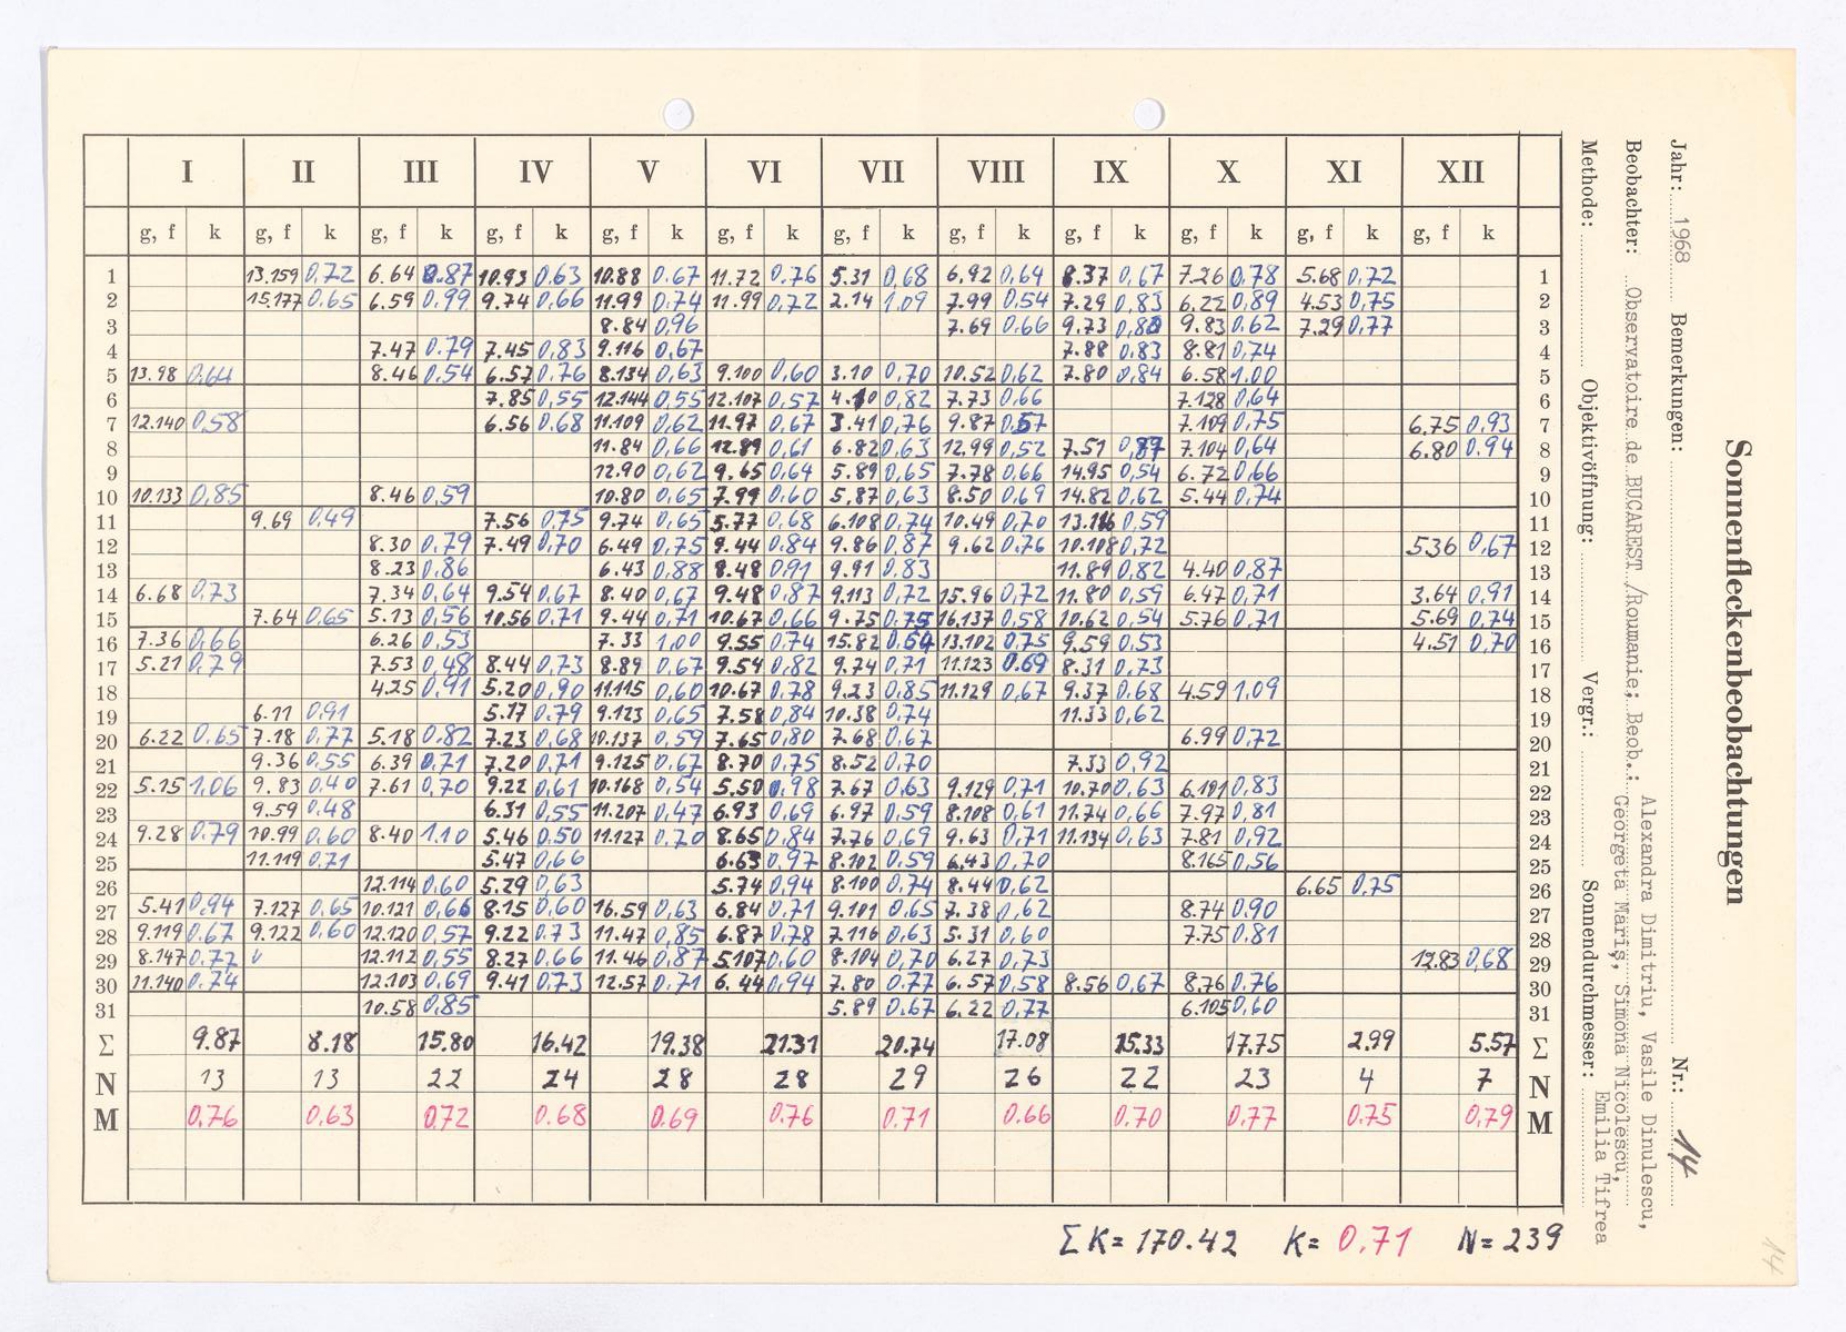 Sonnenfleckenbeobachtungen
Jahr: 1968 Bemerkungen: Nr.: 14
Beobachter: Observatoire de BUCAREST /Roumanie; Beob.: Alexandra Dimitriu, Vasile Dinulescu,
Georgeta Mariş, Simona Nicolescu,
Emilia Tifrea
Methode: Objektivöffnung: Vergr.: Sonnendurchmesser:
I II III IV V VI VII VIII IX X XI XII
g, f k g, f k g, f k g, f k g, f k g, f k g, f k g, f k g, f k g, f k g, f k g, f k
1 13.159 0,72 6.64 0.87 10.93 0.63 10.88 0.67 11.72 0.76 5.31 0,68 6.92 0,64 8.37 0,67 7.26 0,78 5.68 0,72 1
2 15.177 0.65 6.59 0.99 9.74 0.66 11.99 0.74 11.99 0,72 2.14 1.09 7.99 0.54 7.29 0,83 6.22 0,89 4.53 0,75 2
3 8.84 0,96 7.69 0.66 9.73 0,80 9.83 0.62 7.29 0,77 3
4 7.47 0.79 7.45 0,83 9.116 0,67 7.88 0.83 8.81 0,74 4
5 13.98 0,64 8.46 0,54 6.57 0,76 8.134 0,63 9.100 0,60 3.10 0,70 10.52 0,62 7.80 0,84 6.58 1,00 5
6 7.85 0,55 12.144 0,55 12.107 0,57 4.10 0,82 7.73 0,66 7.128 0,64 6
7 12.140 0,58 6.56 0.68 11.109 0,62 11.97 0,67 3.41 0,76 9.87 0,57 7.109 0,75 6.75 0,93 7
8 11.84 0,66 12.89 0,61 6.82 0,63 12.99 0,52 7.51 0,87 7.104 0,64 6.80 0.94 8
9 12.90 0,62 9.65 0,64 5.89 0,65 7.78 0,66 14.95 0,54 6.72 0,66 9
10 10.133 0,85 8.46 0,59 10.80 0,65 7.99 0.60 5,87 0,63 8.50 0,69 14.82 0,62 5.44 0,74 10
11 9.69 0,49 7.56 0,75 9.74 0,65 5.77 0,68 6.108 0,74 10.49 0,70 13.116 0,59 11
12 8.30 0,79 7.49 0,70 6.49 0,75 9.44 0.84 9.86 0,87 9.62 0,76 10.108 0,72 536 0,67 12
13 8.23 0,86 6.43 0,88 8.48 0,91 9.91 0.83 11.89 0,82 4.40 0,87 13
14 6.68 0,73 7.34 0,64 9,54 0,67 8.40 0,67 9.48 0,87 9.113 0,72 15.96 0,72 11.80 0,59 6.47 0,71 3.64 0,91 14
15 7.64 0,65 5.13 0,56 10.56 0.71 9.44 0,71 10.67 0,66 9.75 0.75 16,137 0,58 10.62 0,54 5.76 0,71 5.69 0,74 15
16 7.36 0,66 6.26 0,53 7.33 1,00 9.55 0.74 15.82 0.64 13.102 0,75 9.59 0.53 4.51 0,70 16
17 5.21 0,79 7.53 0,48 8.44 0,73 8.89 0,67 9.54 0,82 9.74 0,71 11.123 0.69 8.31 0,73 17
18 4.25 0,91 5.20 0,90 11.115 0,60 10.67 0,78 9.23 0,85 11.129 0,67 9.37 0.68 4.59 1,09 18
19 6.11 0,91 5.17 0,79 9.123 0,65 7.58 0,84 10.38 0,74 11.33 0,62 19
20 6.22 0.65 7.18 0,77 5.18 0.82 7.23 0,68 10.137 0,59 7.65 0,80 7.68 0,67 6.99 0,72 20
21 9.36 0,55 6.39 0,71 7.20 0,71 9.125 0,67 8.70 0,75 8.52 0,70 7.33 0,92 21
22 5.15 1,06 9.83 0,40 7.61 0,70 9.22 0,61 10.168 0,54 5.50 0.98 7.67 0,63 9.129 0,71 10.70 0,63 6.191 0,83 22
23 9.59 0,48 6.31 0,55 11.207 0,47 6.93 0,69 6.97 0,59 8.108 0,61 11.74 0,66 7.97 0,81 23
24 9.28 0.79 10.99 0,60 8.40 1.10 5.46 0,50 11.127 0,70 8.65 0,84 7.76 0,69 9.63 0,71 11.134 0,63 7.81 0,92 24
25 11.119 0,71 5.47 0,66 6.63 0,97 8.102 0.59 6,43 0,70 8.165 0,56 25
26 12.114 0,60 5.29 0,63 5.74 0,94 8.100 0,74 8.44 0,62 6.65 0,75 26
27 5.41 0,94 7.127 0,65 10.121 0,66 8.15 0,60 16.59 0,63 6.84 0,71 9.101 0,65 7.38 0,62 8.74 0,90 27
28 9.119 0,67 9.122 0,60 12.120 0,57 9.22 0.73 11.47 0,85 6.87 0,78 7.116 0,63 5.31 0,60 7.75 0,81 28
29 8.147 0,77 12.112 0,55 8.27 0,66 11.46 0,87 5.107 0,60 8.104 0,70 6.27 0,73 12.83 0,68 29
30 11.140 0,74 12.103 0,69 9.41 0,73 12.57 0,71 6.44 0,94 7.80 0.77 6.57 0,58 8.56 0,67 8.76 0,76 30
31 10.58 0,85 5.89 0,67 6.22 0,77 6.105 0,60 31
Σ 9.87 8.18 15.80 16.42 19.38 21.31 20.74 17.08 15.33 17.75 2.99 5.57 Σ
N 13 13 22 24 28 28 29 26 22 23 4 7 N
M 0.76 0,63 0.72 0.68 0.69 0.76 0.71 0.66 0.70 0,77 0.75 0,79 M
ΣK= 170.42 K= 0,71 N= 239
14